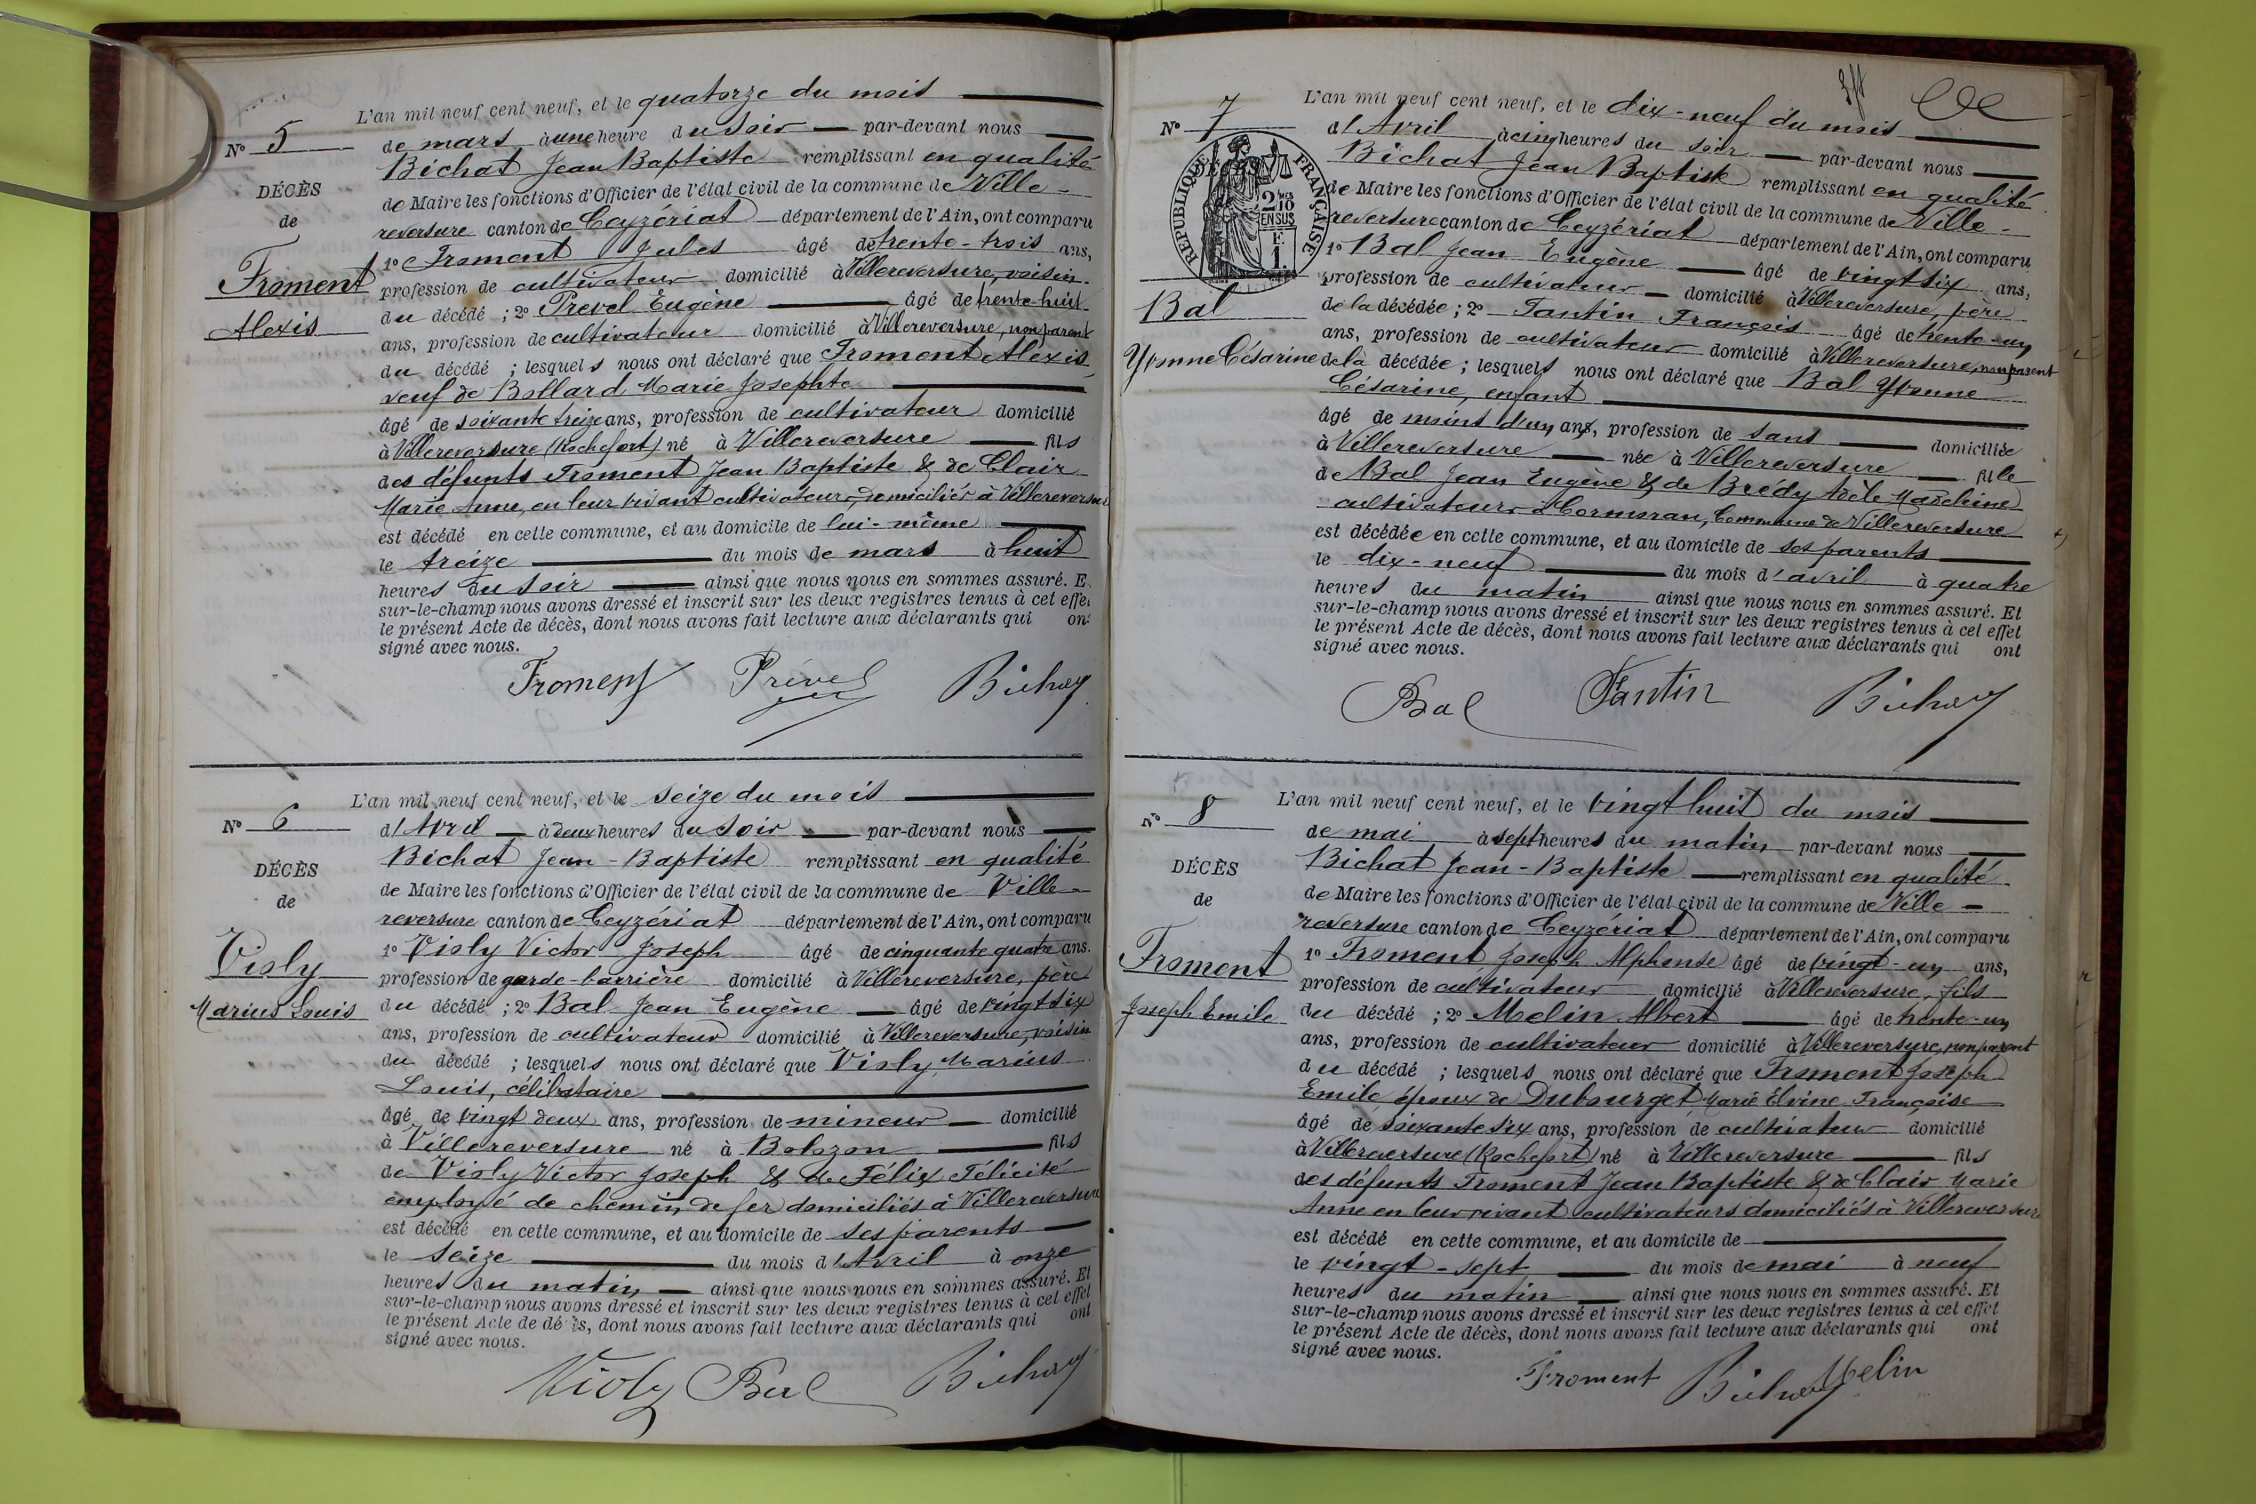 L'an mil neuf cent neuf, et le quatorze du mois
N° 5
de mars à une heure du soir par-devant nous
Bichat Jean Baptiste remplissant en qualité
DÉCÈS
de Maire les fonctions d'Officier de l'état civil de la commune de Ville-
de
reversure canton de Ceyzériat département de l'Ain, ont comparu
1° Froment Jules âgé de trente-trois ans,
Froment
profession de cultivateur domicilié à Villereversure, voisin
du décédé ; 2° Prevel Eugène âgé de trente-huit
Alexis
ans, profession de cultivateur domicilié à Villereversure, non parent
du décédé ; lesquels nous ont déclaré que Froment Alexis
veuf de Bollard Marie Josephte
âgé de soixante treize ans, profession de cultivateur domicilié
à Villereversure (Rochefort) né à Villereversure fils
des défunts Froment Jean Baptiste & de Clair
Marie Anne, en leur vivant cultivateurs, domiciliés à Villereversure
est décédé en cette commune, et au domicile de lui-même
le treize du mois de mars à huit
heures du soir ainsi que nous nous en sommes assuré. E
sur-le-champ nous avons dressé et inscrit sur les deux registres tenus à cet effe
le présent Acte de décès, dont nous avons fait lecture aux déclarants qui on
signé avec nous.
Froment Prével Bichat
L'an mil neuf cent neuf, et le seize du mois
N° 6
d'Avril à deux heures du soir par-devant nous
Bichat Jean-Baptiste remplissant en qualité
DÉCÈS
de Maire les fonctions d'Officier de l'état civil de la commune de Ville-
de
reversure canton de Ceyzériat département de l'Ain, ont comparu
1° Violy Victor Joseph âgé de cinquante quatre ans.
Violy
profession de garde-barrière domicilié à Villereversure, père
Marius Louis
du décédé ; 2° Bal Jean Eugène âgé de vingt six
ans, profession de cultivateur domicilié à Villereversure, voisin
du décédé ; lesquels nous ont déclaré que Violy Marius
Louis, célibataire
âgé de vingt deux ans, profession de mineur domicilié
à Villereversure né à Bolozon fils
de Violy Victor Joseph & de Félix Félicité
employé de chemin de fer domiciliés à Villereversure
est décédé en cette commune, et au domicile de ses parents
le seize du mois d'Avril à onze
heures du matin ainsi que nous nous en sommes assuré. Et
sur-le-champ nous avons dressé et inscrit sur les deux registres tenus à cet effet
le présent Acte de décès, dont nous avons fait lecture aux déclarants qui ont
signé avec nous.
Violy Bal Bichat
L'an mil neuf cent neuf, et le dix-neuf du mois
N° 7
d'Avril à cinq heures du soir par-devant nous
Bichat Jean Baptiste remplissant en qualité
DÉCÈS
RÉPUBLIQUE FRANÇAISE
2 10mes
EN SUS
F.
1.
de Maire les fonctions d'Officier de l'état civil de la commune de Ville-
reversure canton de Ceyzériat département de l'Ain, ont comparu
1° Bal Jean Eugène âgé de vingt six ans,
profession de cultivateur domicilié à Villereversure, père
Bal
de la décédée ; 2° Tantin François âgé de trente-un
ans, profession de cultivateur domicilié à Villereversure, non parent
Yvonne Césarine
de la décédée ; lesquels nous ont déclaré que Bal Yvonne
Césarine, enfant
âgé de moins d'un ans, profession de sans domiciliée
à Villereversure née à Villereversure fille
de Bal Jean Eugène & de Brédy Adèle Madeleine
cultivateurs à Cormoran, Commune de Villereversure
est décédée en cette commune, et au domicile de ses parents
le dix-neuf du mois d'avril à quatre
heures du matin ainsi que nous nous en sommes assuré. Et
sur-le-champ nous avons dressé et inscrit sur les deux registres tenus à cet effet
le présent Acte de décès, dont nous avons fait lecture aux déclarants qui ont
signé avec nous.
Bal Tantin Bichat
L'an mil neuf cent neuf, et le vingt huit du mois
N° 8
de mai à sept heures du matin par-devant nous
Bichat Jean-Baptiste remplissant en qualité
DÉCÈS
de Maire les fonctions d'Officier de l'état civil de la commune de Ville-
de
reversure canton de Ceyzériat département de l'Ain, ont comparu
1° Froment Joseph Alphonse âgé de vingt-un ans,
Froment
profession de cultivateur domicilié à Villereversure, fils
Joseph Emile
du décédé ; 2° Melin Albert âgé de trente-un
ans, profession de cultivateur domicilié à Villereversure, non parent
du décédé ; lesquels nous ont déclaré que Froment Joseph
Emile époux de Dubourget Marie Elvine Françoise
âgé de soixante six ans, profession de cultivateur domicilié
à Villereversure (Rochefort) né à Villereversure fils
des défunts Froment Jean Baptiste & de Clair Marie
Anne en leur vivant cultivateurs domiciliés à Villereversure
est décédé en cette commune, et au domicile de
le vingt-sept du mois de mai à neuf
heures du matin ainsi que nous nous en sommes assuré. Et
sur-le-champ nous avons dressé et inscrit sur les deux registres tenus à cet effet
le présent Acte de décès, dont nous avons fait lecture aux déclarants qui ont
signé avec nous.
Froment Bichat Melin